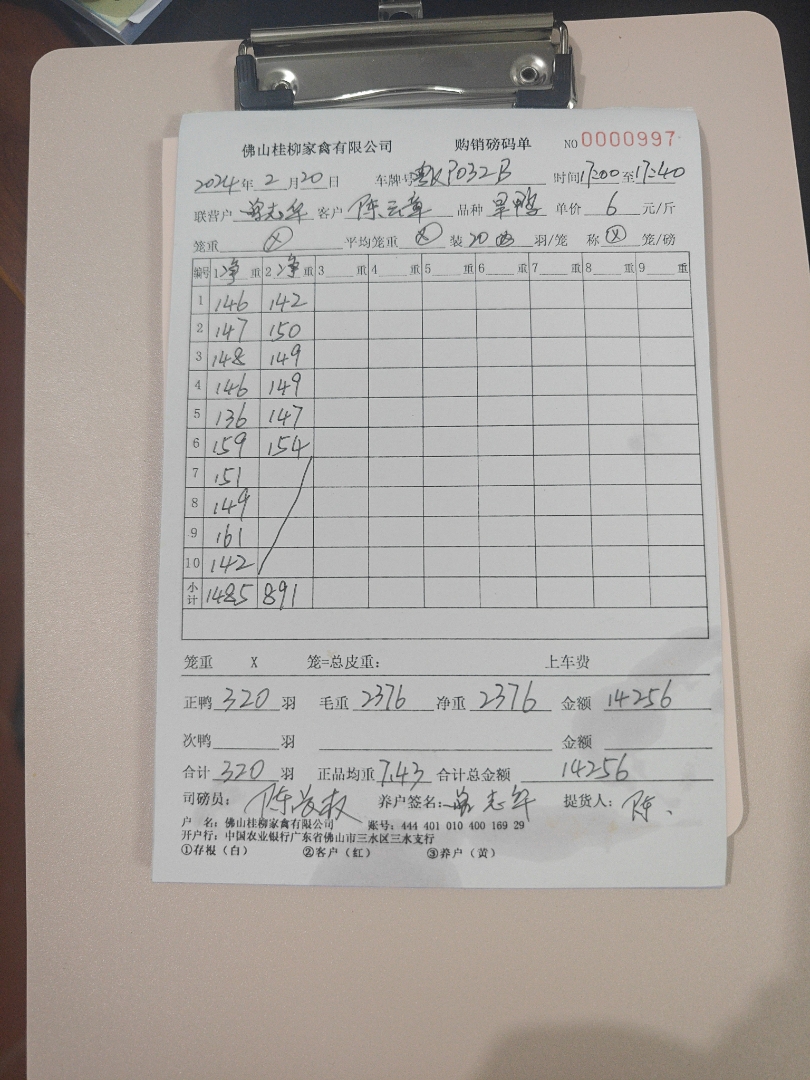 佛山桂柳家禽有限公司 购销磅码单 NO 0000997
2024年 2 月 20 日 车牌号 时间 17:00 至 17:40
联营户 客户 陈云章 品种 旱鸭 单价 6 元/斤
笼重 ⊗ 平均笼重 ⊗ 装 20 羽/笼 称 ⊗ 笼/磅
编号 1 净 重 2 净 重 3 重 4 重 5 重 6 重 7 重 8 重 9 重
1 146 142
2 147 150
3 148 149
4 146 149
5 136 147
6 159 154
7 151
8 149
9 161
10 142
小计 1485 891
笼重 X 笼=总皮重: 上车费
正鸭 320 羽 毛重 2376 净重 2376 金额 14256
次鸭 羽 金额
合计 320 羽 正品均重 7.43 合计总金额 14256
司磅员: 养户签名: 提货人: 陈
户 名: 佛山桂柳家禽有限公司 账号: 444 401 010 400 169 29
开户行: 中国农业银行广东省佛山市三水区三水支行
①存根(白) ②客户(红) ③养户(黄)